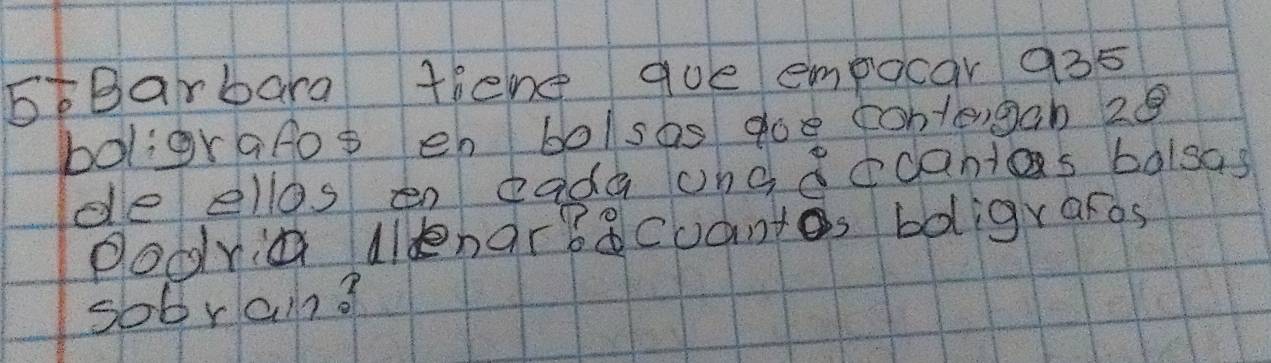 5: Barbara tiene que empacar 935
boligrafos en bolsas que contengan 28
de ellos en cada una ¿cuantas bolsas
podria llenar? ¿cuantos boligrafos
sobran?